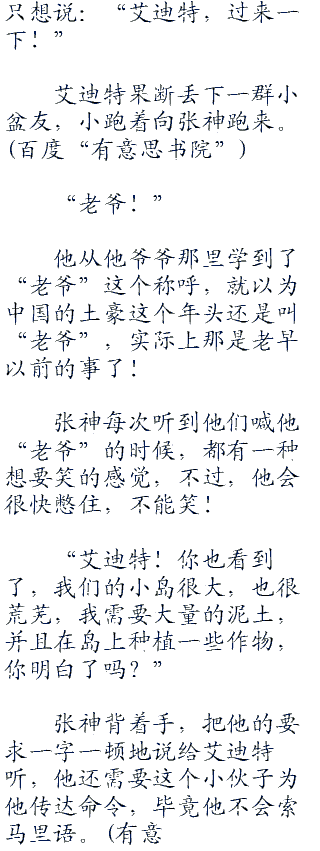 只想说：“艾迪特，过来一
下！”
艾迪特果断丢下一群小
盆友，小跑着向张神跑来。
(百度“有意思书院”)
“老爷！”
他从他爷爷那里学到了
“老爷”这个称呼，就以为
中国的土豪这个年头还是叫
“老爷”，实际上那是老早
以前的事了！
张神每次听到他们喊他
“老爷”的时候，都有一种
想要笑的感觉，不过，他会
很快憋住，不能笑！
“艾迪特！你也看到
了，我们的小岛很大，也很
荒芜，我需要大量的泥土，
并且在岛上种植一些作物，
你明白了吗？”
张神背着手，把他的要
求一字一顿地说给艾迪特
听，他还需要这个小伙子为
他传达命令，毕竟他不会索
马里语。(有意